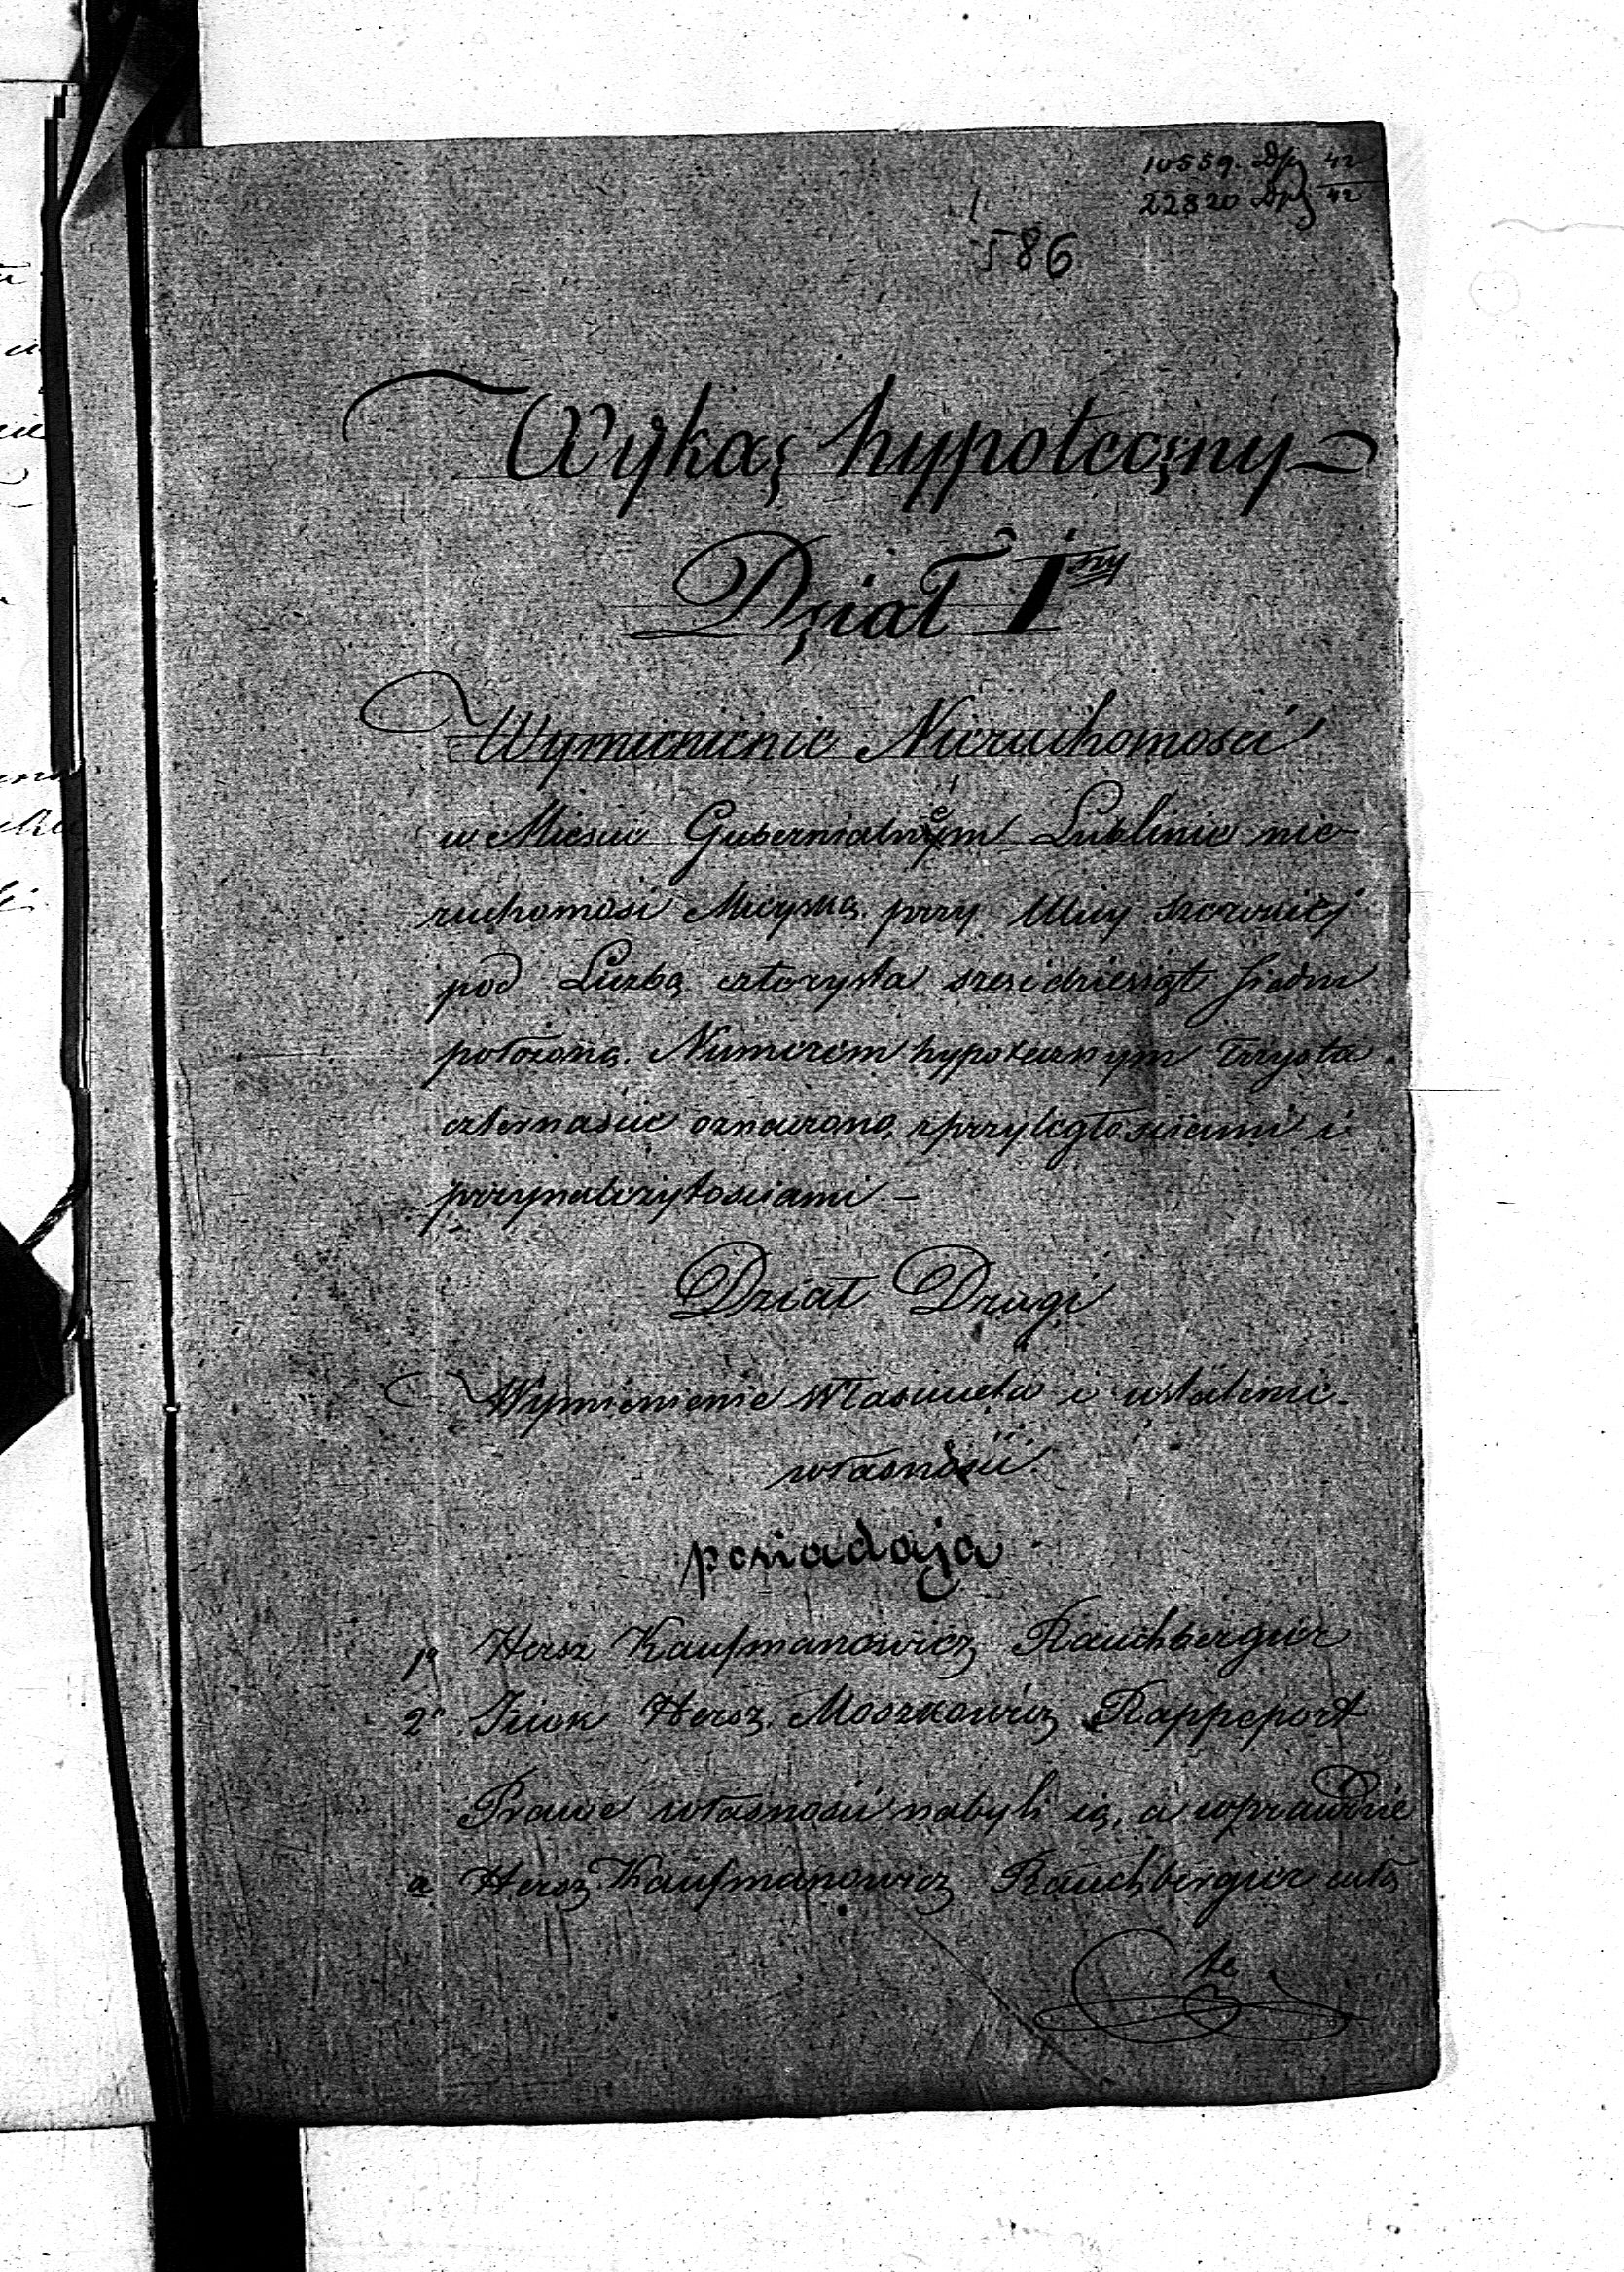 10559. Dpz 42
22820 Dpz 42
586
Wykaz hypoteczny
Dział Iszy
Wymienienie Nieruchomości
w Mieście Gubernialném Lublinie nie-
ruchomość Mieyska przy Ulicy Szerokiej
pod Liczbą czterysta sześćdziesiąt siedm
położona. Numerem hypotecznym trzysta
czternaście oznaczona, z przyległościami i
przynależytościami -
Dział Drugi
Wymienienie właściciela i ustalenie
własności
posiadają
1o Hersz Kaufmanowicz Rauchbergier
2o Icick Hersz Moszkowicz Rappeport
Prawe własności nabyli ią, a wprawdzie
a Hersz Kaufmanowicz Rauchbergier całą